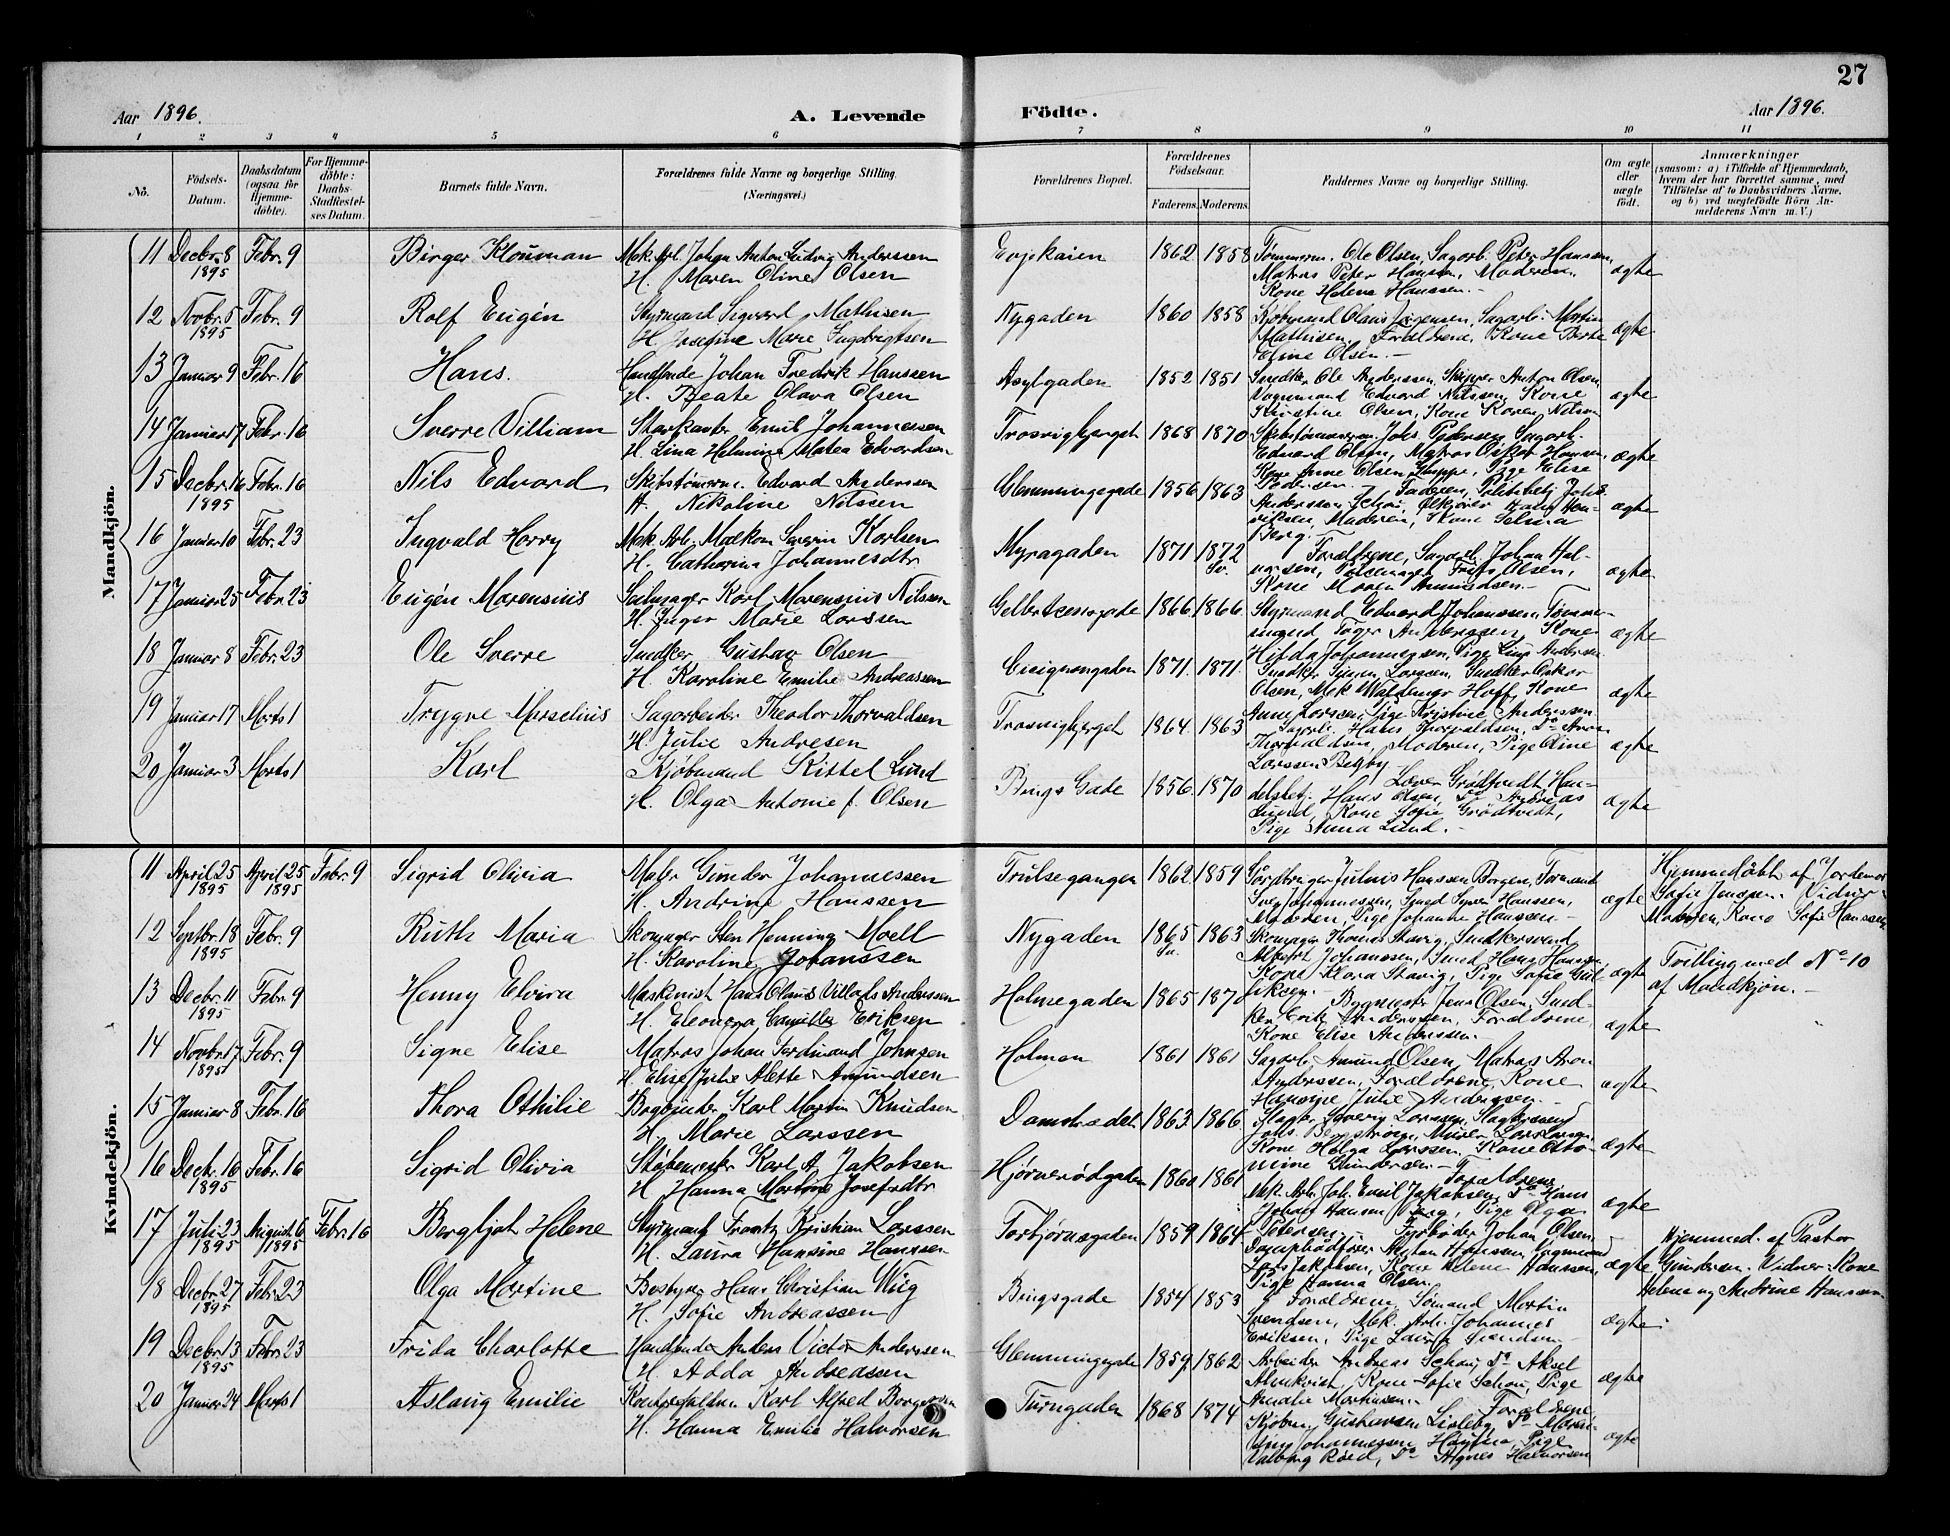 27
Aar 1896. A. Levende Födte. Aar 1896.
1 2 3 4 5 6 7 8 9 10 11
No. Födsels-Datum. Daabsdatum (ogsaa for Hjemme-döbte). For Hjemme-döbte: Daabs-Stadfæstel-ses Datum. Barnets fulde Navn. Forældrenes fulde Navne og borgerlige Stilling. (Næringsvei.) Forældrenes Bopæl. Forældrenes Födselsaar. Faderens. Moderens. Faddernes Navne og borgerlige Stilling. Om ægte eller uægte födt. Anmærkninger (saasom: a) i Tilfælde af Hjemmedaab, hvem der har forrettet samme, med Tilföielse af to Daabsvidners Navne, og b) ved uægtefödte Börn An-melderens Navn m. V.)
Mandkjön.
11 Decbr. 8 1895 Febr. 9 Birger Klouman Mek. Arb. Johan Anton Ludvig Anderssen
H. Maren Oline Olsen Evjekaien 1862 1858 Tömmerm. Ole Olsen, Sagarb. Peter Hanssen,
Matros Peter Hanssen, Moderen,
Kone Helene Hanssen. ægte
12 Novbr. 5 1895 Febr. 9 Rolf Eugén Styrmand Sigvard Mathisen
H. Josefine Marie Nygaden 1860 1858 Kjöbmand Olaus Jörgensen, Sagarb. Martin
Mathisen, Forældrene, Kone Berte
Oline Olsen. ægte
13 Januar 9 Febr. 16 Hans. Johan Fredrik Hanssen
H. Beate Olava Olsen Asylgaden 1852 1851 Snedker Ole Anderssen, Skipper Anton Olsen,
Vognmand Edvard Nilssen, Kone
Kirstine Olsen, Kone Karen Nilsen ægte
14 Januar 17 Febr. 16 Sverre Villiam Emil Johannessen
H. Lina Helmine Matea Edvardsen Trosvigbjerget 1868 1870 Skibstömmerm. Johs. Pedersen, Sagarb.
Edvard Olsen, Matros Oskar Hansen,
Kone Anne Olsen Pige Elise
Pedersen. ægte
15 Decbr. 16 1895 Febr. 16 Nils Edvard Skibstömerm. Edvard Anderssen
H. Nikoline Nilssen Glemmingegade 1856 1863 Faderen, Johs.
Anderssen Hans Hen-
riksen, Moderen, Kone Selma
Berg. ægte
16 Januar 10 Febr. 23 Ingvald Harry Mek. Arb. Malkom Severin Karlsen
H. Cathrina Johannesdtr Myragaden 1871 1872 Sv. Forældrene, Sagarb. Johan Hal-
Frits Olsen,
Kone Maren Amundsen. ægte
17 Januar 25 Febr. 23 Eugén Marensius Karl Marensius Nilssen
H. Inger Marie Larssen 1866 1866 Styrmand Edvard Johanssen, Tömmer-
mand Anderssen, Kone
Hilda Johannessen, Pige Anderssen ægte
18 Januar 8 Febr. 23 Ole Sverre Snedker Gustav Olsen
H. Karoline Emilie Andreassen Cicignongaden 1871. 1871. Snedker Simen Larssen, Snedker Oskar
Olsen, Mek. Waldemar Hoff, Kone
Anne Larssen, Pige Kristine Anderssen ægte
19 Januar 17 Marts 1 Trygve Marselius Sagarbeider Theodor Thorvaldsen
H. Julie Andresen Trosvigbjerget 1864. 1863 Sagarb. Hans Thorvaldsen, Do Aron
Thorvaldsen, Moderen, Pige Oline
Larssen Begby. ægte
20 Januar 3 Marts 1 Karl Kjöbmand Kittel Lund
H. Olga Antonie f. Olsen Bings Gade 1856. 1870 Grödtvedt, Han-
delsbetj. Hans Olsen, Do Andreas
Lund, Kone Sofie Grödtvedt,
Pige Anna Lund. ægte
Kvindekjön.
11 April 25 1895 April 25 1895 Febr. 9 Sigrid Olivia Maler Gunder Johannessen
H. Andrine Hanssen Trulsegangen 1862 1859 Julius Hanssen Borgen, Formand
Johannessen, Smed Syver Hanssen,
Moderen, Pige Johanne Hanssen. ægte Hjemmedöbt af Jordemor
Sofie Jenssen. Vidner:
Moderen, Kone Sofie Hanssen.
12 Septbr. 18 1895 Febr. 9 Ruth Maria Skomager Sten Henning Moell
H. Karoline Johanssen Nygaden 1865 Sv. 1863 Skomager Thomas Stavig, Snedkersvend
Albert Johanssen, Smed Hans Hanssen,
Kone Klara Stavig, Pige Sofie Gul-
liksen. ægte Tvilling med No 10
af Mandkjön.
13 Decbr. 11 1895 Febr. 9 Henny Elvira Maskinist Hans Olaus Villads Andresen
H. Eleonora Camilla Eriksen Holmegaden 1865 1870 Bygmester Jens Olsen, Sned-
ker Erik Anderssen, Forældrene,
Kone Elise Anderssen. ægte
14 Novbr. 17 1895 Febr. 9 Signe Elise Matros Johan Ferdinand Johnsen
H. Elise Julie Alette Amundsen Holmen 1861 1861 Sagarb. Amund Olsen, Matros Aron
Anderssen, Forældrene, Kone
Hansine Julie Anderssen. ægte
15 Januar 8 Febr. 16 Thora Othilie Bogbinder Karl Martin Knudsen
H. Marie Larssen Damstrædet 1863 1866 Slagter Severin Larssen,
Johs. Bergström, Murer
Kone Helga Larssen, Kone Otto-
mine Gundersen. ægte
16 Decbr. 16 1895 Febr. 16 Sigrid Olivia Stöbemester Karl A. Jakobsen
H. Hanna Martine Josefsdtr Hjörnerödgaden 1860 1861 Forældrene,
Mek. Arb. Joh. Emil Jakobsen, Do Hans
Johan Hansen Berg, Pige Olga
Petersen. ægte
17 Juli 23 1895 August 6 1895 Febr. 16 Bergljot Helene Styrmand Frantz Kristian Larssen
H. Laura Hansine Hanssen Torbjörnsgaden 1859 1864 Fyrböder Johan Olsen,
Anton Hanssen, Vognmand
Lars Jakobsen, Kone Helene Hanssen,
Pige Hanna Olsen. ægte Hjemmed. af Pastor
Gundersen. Vidner: Kone
Helene og Andrine Hanssen.
18 Decbr. 27 1895 Febr. 23 Olga Martine Bestyrer Hans Christian Wüg
H. Sofie Andreassen Bingsgade 1854 1853 Forældrene, Sömand Martin
Svendsen, Mek. Arb. Johannes
Eriksen, Pige Laura Svendsen. ægte
19 Decbr. 13 1895 Febr. 23 Frida Charlotte Anders Victor Anderssen
H. Adda Andreassen Glemmingegade 1859 1862 Arbeider Andreas Schau, Do Aksel
Almkvist, Kone Sofie Schau, Pige
Amalie Martinsen. ægte
20 Januar 24 Marts 1 Aslaug Emilie Karl Alfred Borgersen
H. Hanna Emilie Halvorsen Turngaden 1868 1874 Forældrene
Kjöbm. Gustavsen Lisleby, Do Mares-
Johannessen Pige
Valborg Röed, Do Agnes Halvorsen ægte